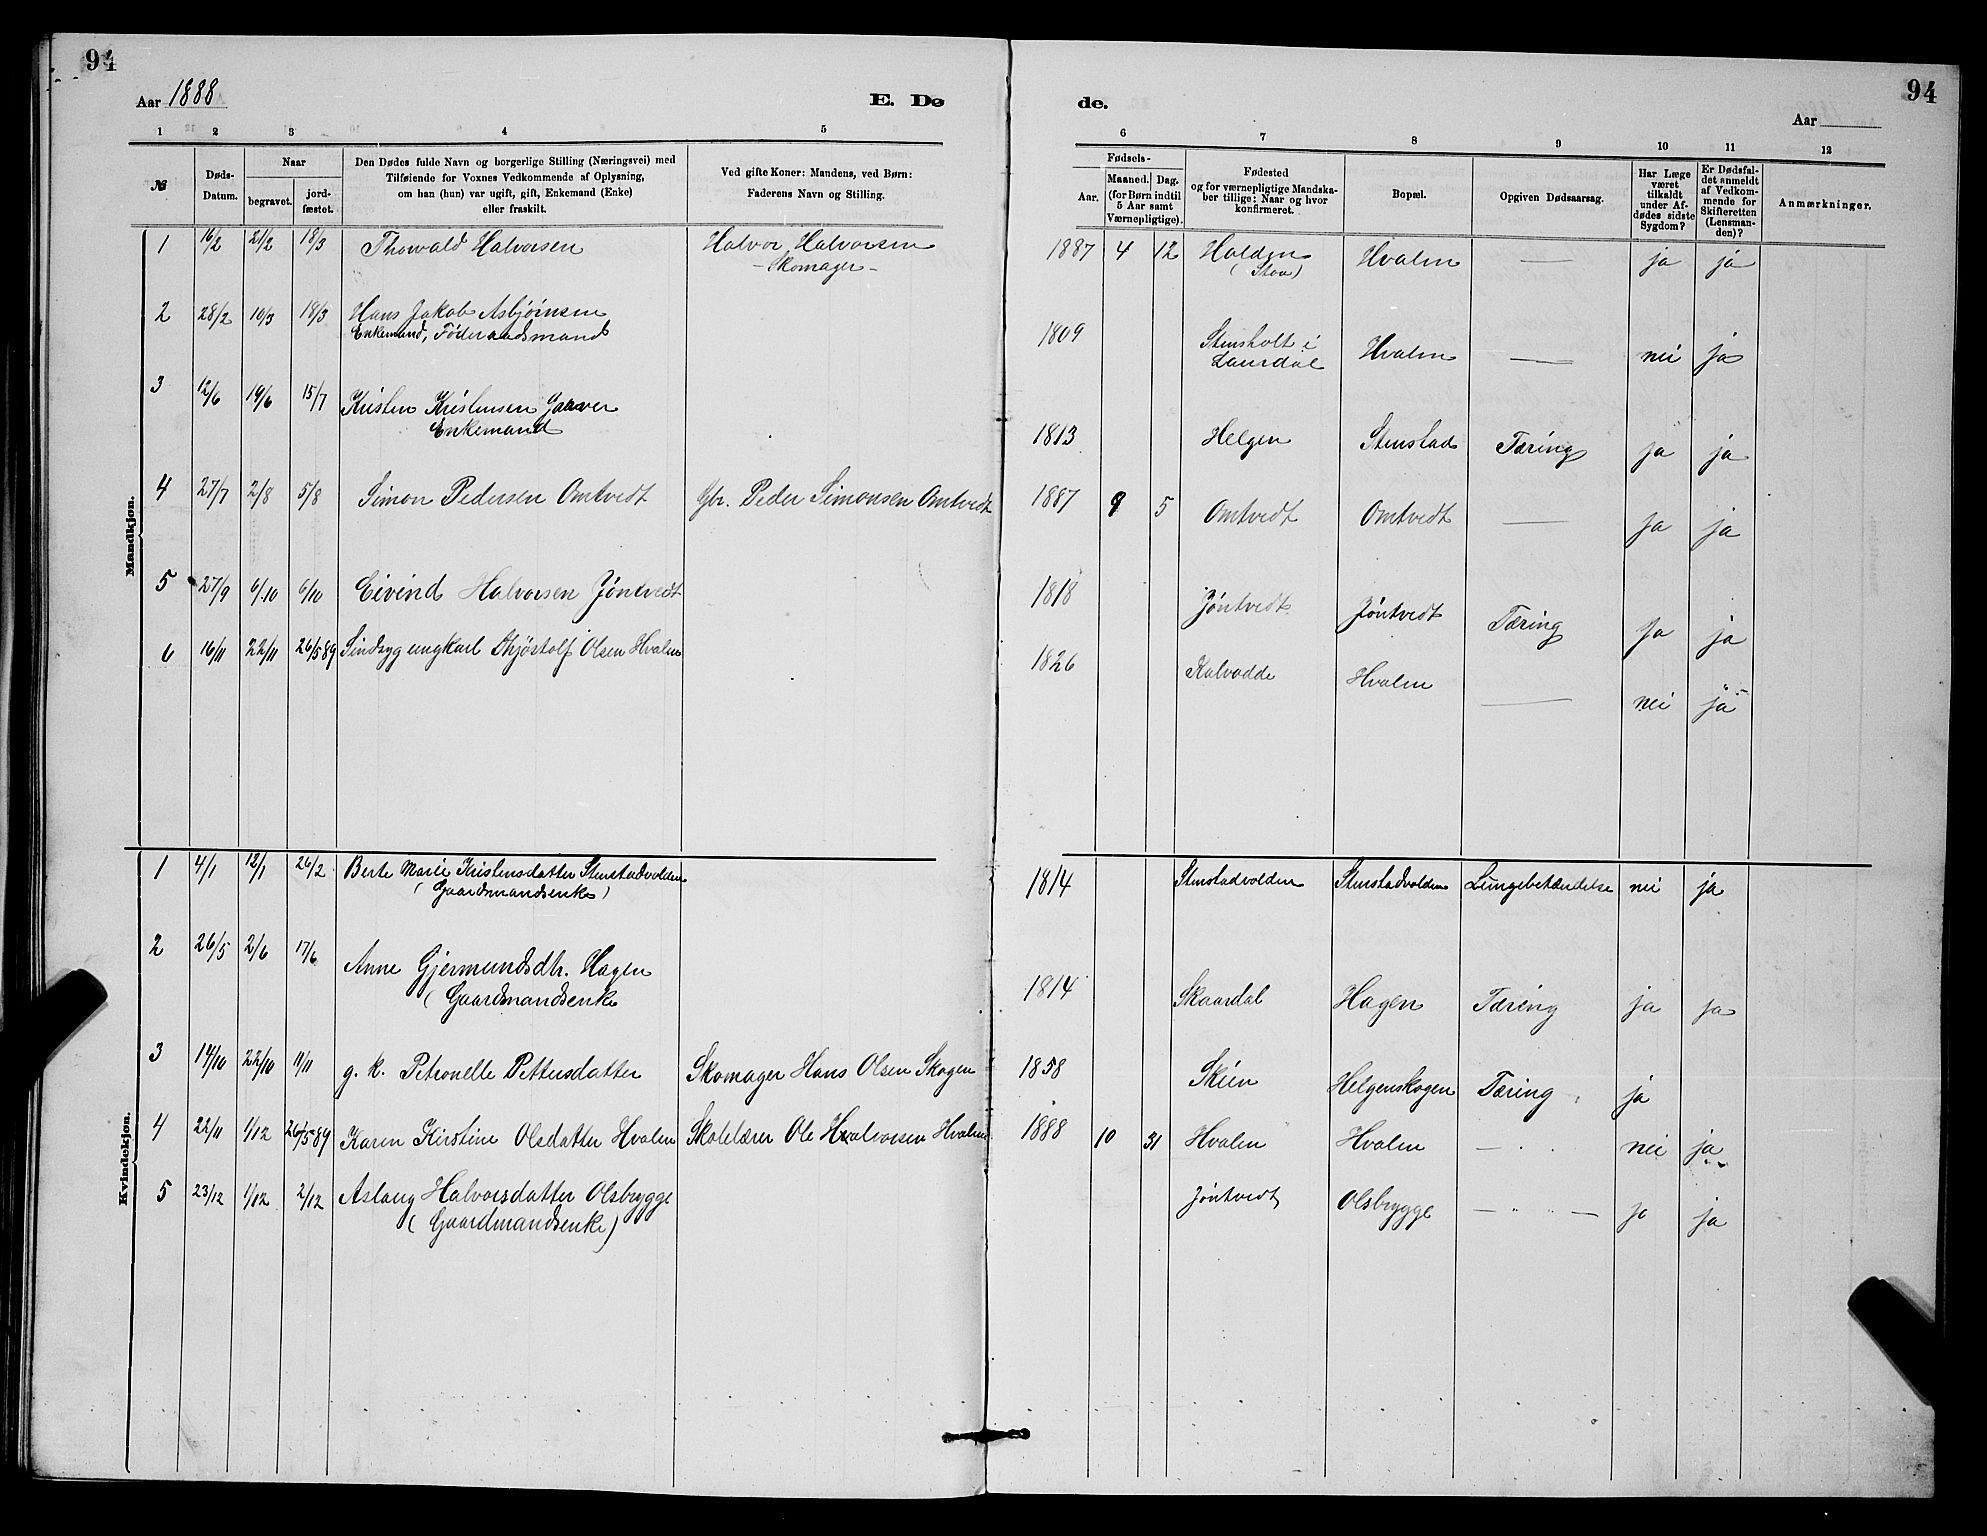 94
94
Aar 1888
E. Dø
de.
Aar
1 2 3 4 5 6 7 8 9 10 11 12
№
Døds-
Datum.
Naar
begravet.
jord-
fæstet.
Den Dødes fulde Navn og borgerlige Stilling (Næringsvei) med
Tilføiende for Voxnes Vedkommende af Oplysning,
om han (hun) var ugift, gift, Enkemand (Enke)
eller fraskilt.
Ved gifte Koner: Mandens, ved Børn:
Faderens Navn og Stilling.
Fødsels-
Aar.
Maaned. Dag.
(for Børn indtil
5 Aar samt
Værnepligtige).
Fødested
og for værnepligtige Mandska-
ber tillige: Naar og hvor
konfirmeret.
Bopæl.
Opgiven Dødsaarsag.
Har Læge
været
tilkaldt
under Af-
dødes sidste
Sygdom?
Er Dødsfal-
det anmeldt
af Vedkom-
mende for
Skifteretten
(Lensman-
den)?
Anmærkninger.
Mandkjøn.
1 16/2 21/2 18/3 Thorvald Halvorsen Halvor Halvorsen 1887 4 12 Holden Hvalen — ja ja
- Skomager -
2 28/2 10/3 18/3 Hans Jakob Asbjørnsen
Enkemand, Føderaadsmand
1809 Stensholt i
Laurdal Hvalen — nei ja
3 12/6 19/6 15/7 Kristen Kristensen Gaarer
Enkemand
1813 Helgen Stenstad Tæring ja ja
4 27/7 2/8 5/8 Simon Pedersen Omtvedt Gbr. Peder Simonsen Omtvedt 1887 9 5 Omtvedt Omtvedt — ja ja
5 27/9 6/10 6/10 Eivind Halvorsen Jøntvedt 1818 Jøntvedt Jøntvedt Tæring ja ja
6 16/11 22/11 26/5 89 Sindsyg ungkarl Thjøstolf Olsen Hvalen 1826 Kalvodde Hvalen — nei ja
Kvindekjøn.
1 4/1 12/1 26/2 Berte Marie Kristensdatter Stenstadvolden 1814 Stenstadvolden Stenstadvolden Lungebetændelse nei ja
(Gaardmandsenke)
2 26/5 2/6 17/6 Anne Gjermundsdtr. Hagen
(Gaardmandsenke
1814 Skaardal Hagen Tæring ja ja
3 14/10 22/10 11/11 g. k. Petronelle Pettersdatter Skomager Hans Olsen Skogen 1858 Skien Helgenskogen Tæring ja
4 22/11 1/12 26/5 89 Karen Kirstine Olsdatter Hvalen Skolelærer Ole Halvorsen Hvalen 1888 10 31 Hvalen Hvalen — nei ja
5 23/12 1/12 2/12 Aslaug Halvorsdatter Olsbrygge Jøntvedt Olsbrygge — ja ja
(Gaardmandsenke)